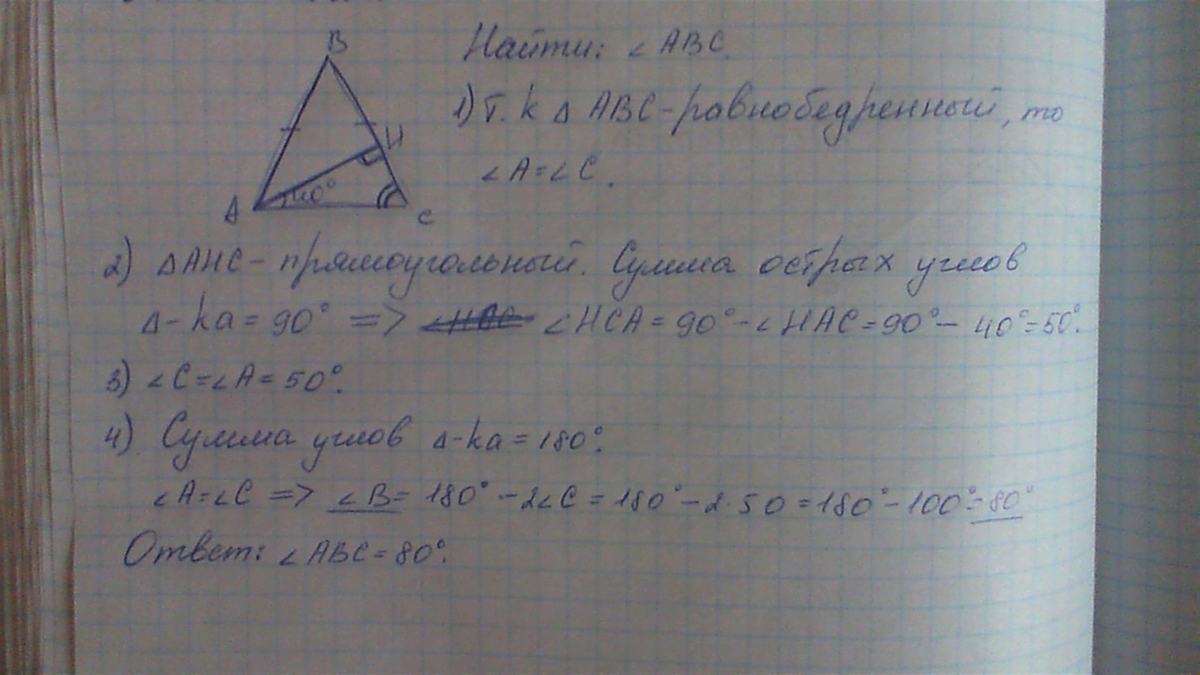 B
Найти: ∠ABC.
1) Т.к Δ ABC-равнобедренный, то
H
∠A=∠C.
40°
A
C
2) ΔAHC- прямоугольный. Сумма острых углов
Δ-ka=90° => ∠HCA=90°-∠HAC=90°- 40°=50°.
3) ∠C=∠A=50°.
4) Сумма углов Δ-ka=180°.
∠A=∠C => ∠B= 180° -2∠C =180°-2·50=180°-100°=80°
Ответ: ∠ABC=80°.